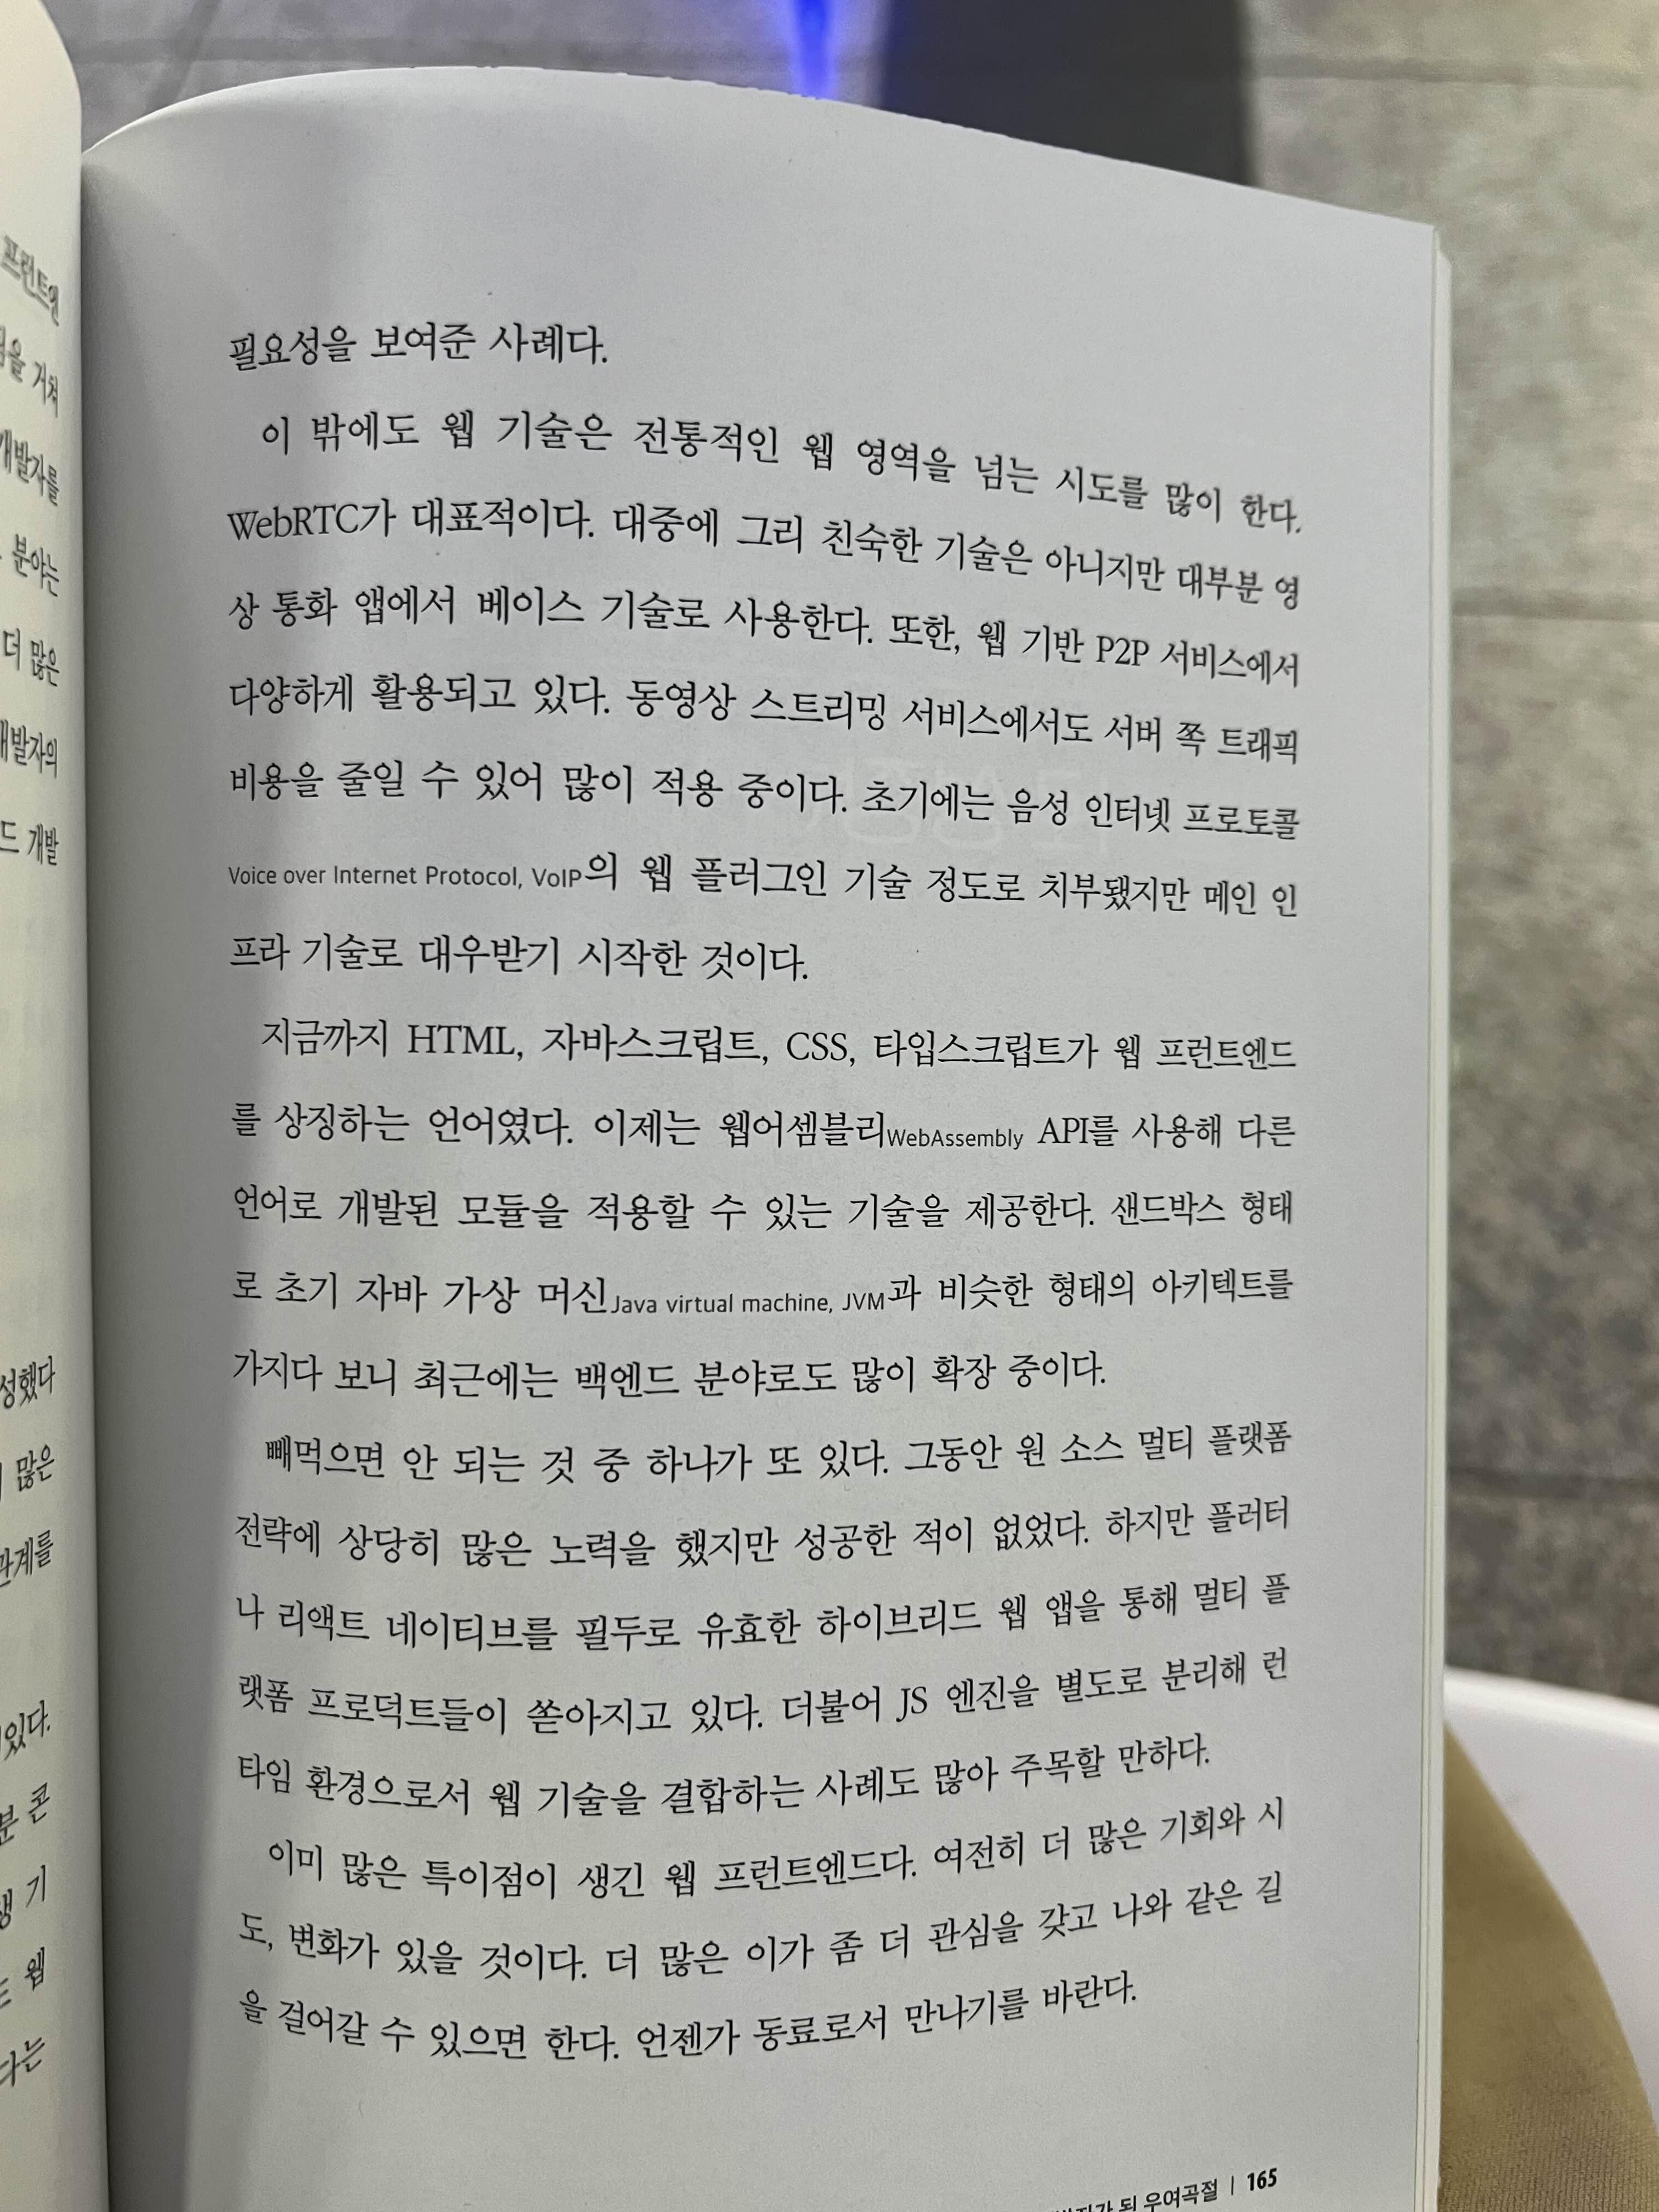 프런트엔
거쳐
개발자를
분야는
더 많은
개발자의
드 개발
성했다
많은
관계를
있다.
분 콘
기
웹
다는
필요성을 보여준 사례다.
이 밖에도 웹 기술은 전통적인 웹 영역을 넘는 시도를 많이 한다.
WebRTC가 대표적이다. 대중에 그리 친숙한 기술은 아니지만 대부분 영
상 통화 앱에서 베이스 기술로 사용한다. 또한, 웹 기반 P2P 서비스에서
다양하게 활용되고 있다. 동영상 스트리밍 서비스에서도 서버 쪽 트래픽
비용을 줄일 수 있어 많이 적용 중이다. 초기에는 음성 인터넷 프로토콜
Voice over Internet Protocol, VoIP의 웹 플러그인 기술 정도로 치부됐지만 메인 인
프라 기술로 대우받기 시작한 것이다.
지금까지 HTML, 자바스크립트, CSS, 타입스크립트가 웹 프런트엔드
를 상징하는 언어였다. 이제는 웹어셈블리WebAssembly API를 사용해 다른
언어로 개발된 모듈을 적용할 수 있는 기술을 제공한다. 샌드박스 형태
로 초기 자바 가상 머신Java virtual machine, JVM과 비슷한 형태의 아키텍트를
가지다 보니 최근에는 백엔드 분야로도 많이 확장 중이다.
빼먹으면 안 되는 것 중 하나가 또 있다. 그동안 원 소스 멀티 플랫폼
전략에 상당히 많은 노력을 했지만 성공한 적이 없었다. 하지만 플러터
나 리액트 네이티브를 필두로 유효한 하이브리드 웹 앱을 통해 멀티 플
랫폼 프로덕트들이 쏟아지고 있다. 더불어 JS 엔진을 별도로 분리해 런
타임 환경으로서 웹 기술을 결합하는 사례도 많아 주목할 만하다.
이미 많은 특이점이 생긴 웹 프런트엔드다. 여전히 더 많은 기회와 시
도, 변화가 있을 것이다. 더 많은 이가 좀 더 관심을 갖고 나와 같은 길
을 걸어갈 수 있으면 한다. 언젠가 동료로서 만나기를 바란다.
된 우여곡절 | 165